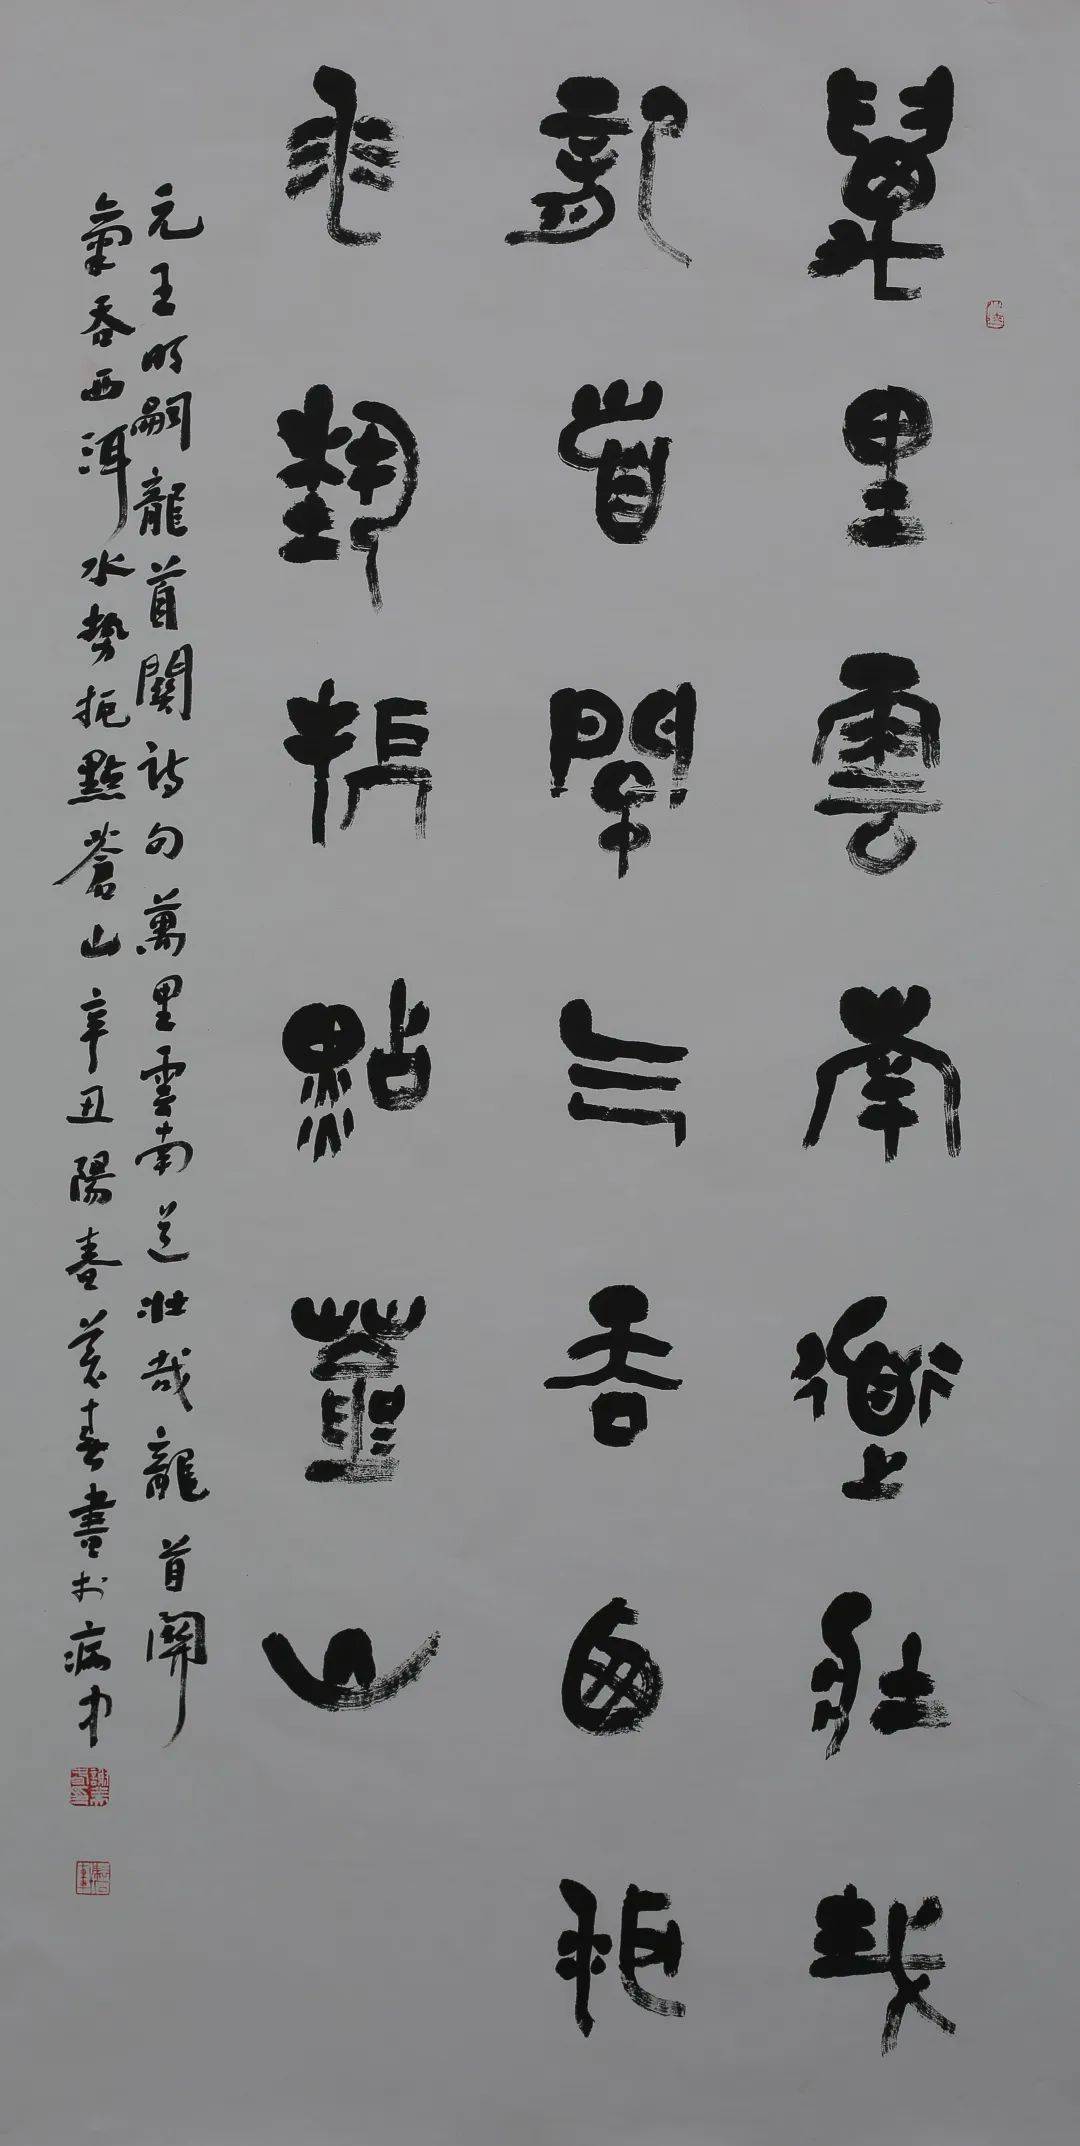 萬里雲南道壯哉
龍首關气吞西洱
水勢扼點蒼山
元王明嗣龍首關詩句萬里雲南道壯哉龍首關
氣吞西洱水勢扼點蒼山辛丑陽春業春書於病中